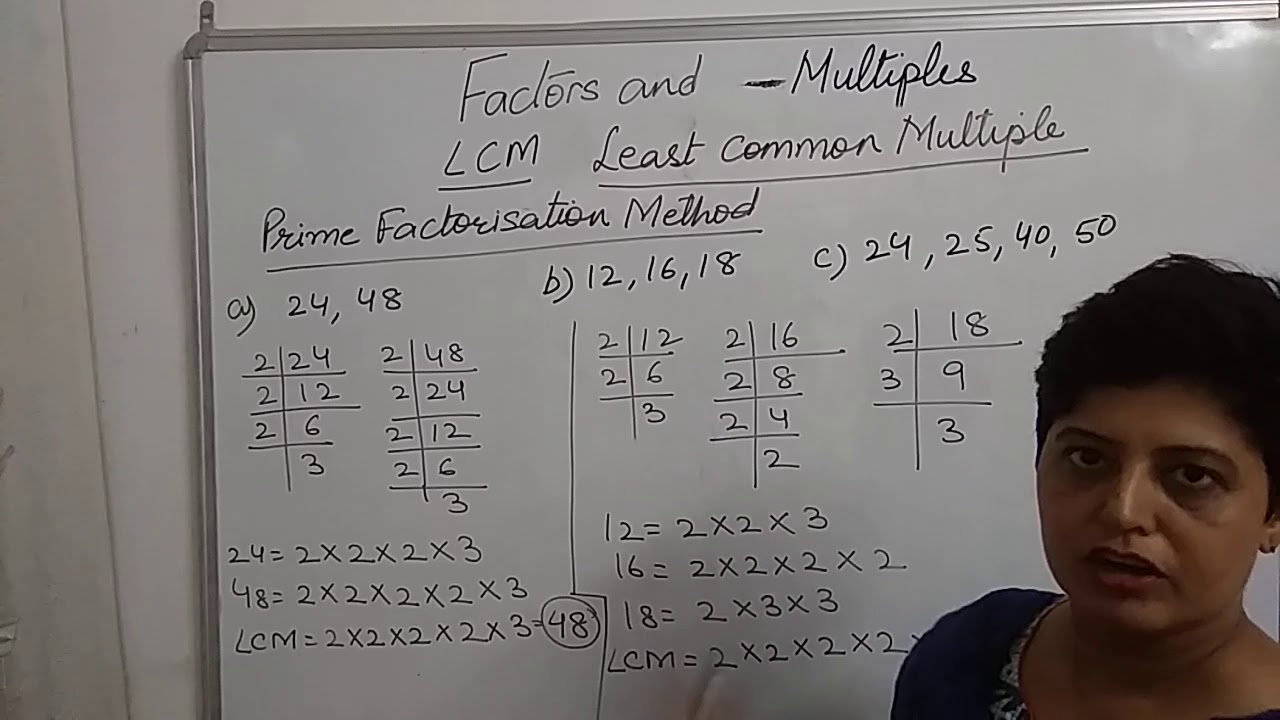 Factors and – Multiples
LCM Least Common Multiple
Prime Factorisation Method
a) 24, 48
b) 12, 16, 18
c) 24, 25, 40, 50
2 | 24
2 | 12
2 | 6
3
2 | 48
2 | 24
2 | 12
2 | 6
3
2 | 12
2 | 6
3
2 | 16
2 | 8
2 | 4
2
2 | 18
3 | 9
3
24 = 2×2×2×3
48 = 2×2×2×2×3
LCM = 2×2×2×2×3=48
12 = 2×2×3
16 = 2×2×2×2
18 = 2×3×3
LCM = 2×2×2×2